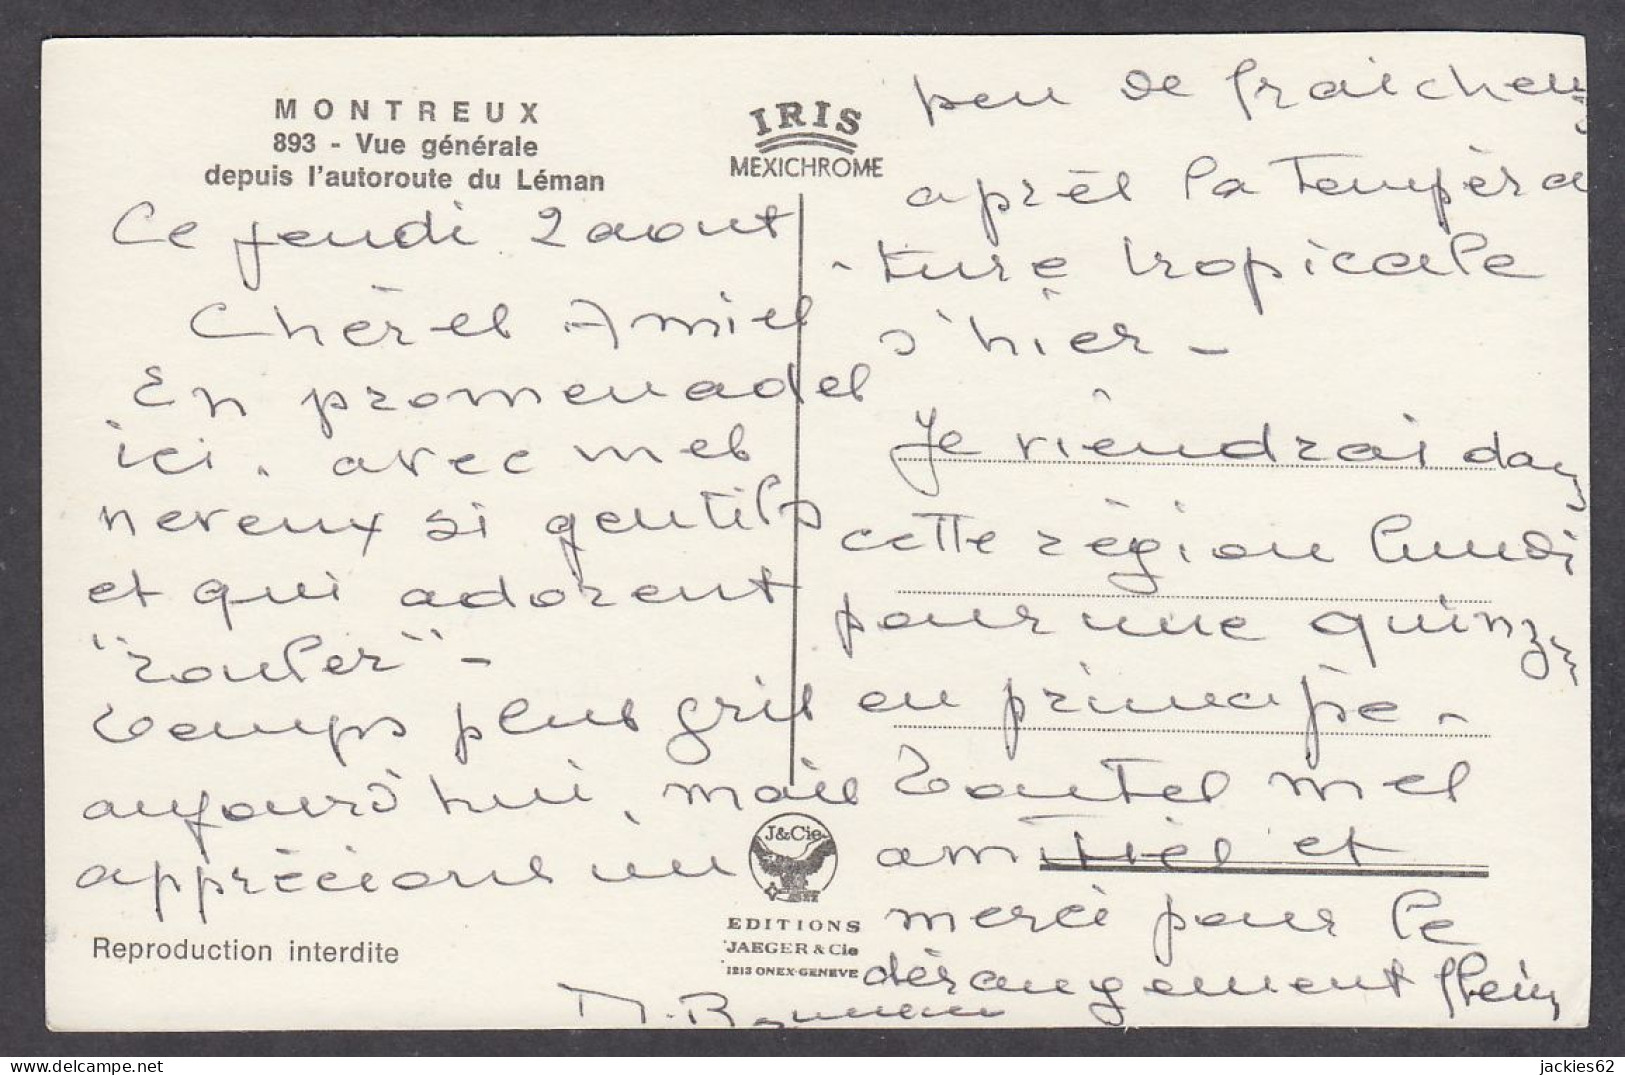 MONTREUX
893 - Vue générale
depuis l'autoroute du Léman
IRIS
MEXICHROME
Ce jeudi 2 aout
Chères Amies
En promenades
ici, avec mes
neveux si gentils
et qui adorent
"rouler" -
temps plus gris
aujourd'hui, mais
apprécions un
peu de fraicheur
après la tempéra
-ture tropicale
d'hier -
Je viendrai dans
cette région lundi
pour une quinz
en principe -
toutes mes
amitiés et
merci pour le
dérangement
M.
J&Cie
EDITIONS
JAEGER & Cie
1213 ONEX-GENEVE
Reproduction interdite
delcampe.net
jackies62